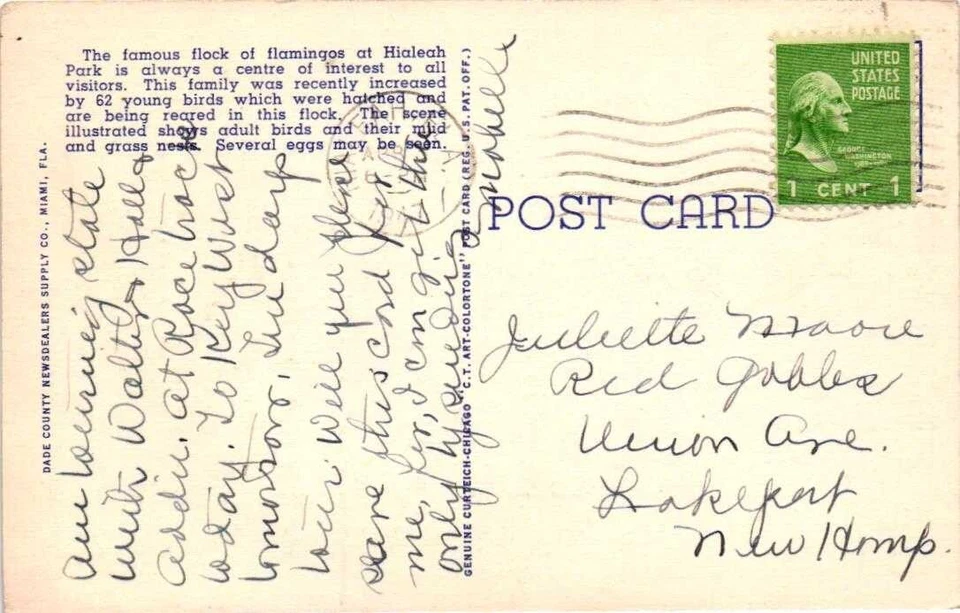 The famous flock of flamingos at Hialeah
Park is always a centre of interest to all
visitors. This family was recently increased
by 62 young birds which were hatched and
are being reared in this flock. The scene
illustrated shows adult birds and their mud
and grass nests. Several eggs may be seen.
DADE COUNTY NEWSDEALERS SUPPLY CO., MIAMI, FLA.
GENUINE CURTEICH-CHICAGO "C.T. ART-COLORTONE" POST CARD (REG. U.S. PAT. OFF.)
Am touring state
with Walter & Hall &
Addie. At Race track
today. To Key West
tomorrow. Ten days
tour. Will you please
save this card for
me, for, I can get the
only by sending
Mabelle
UNITED
STATES
POSTAGE
GEORGE
WASHINGTON
1 CENT 1
POST CARD
Juliette Moore
Red Gables
Union Ave.
Lakeport
New Hamp.